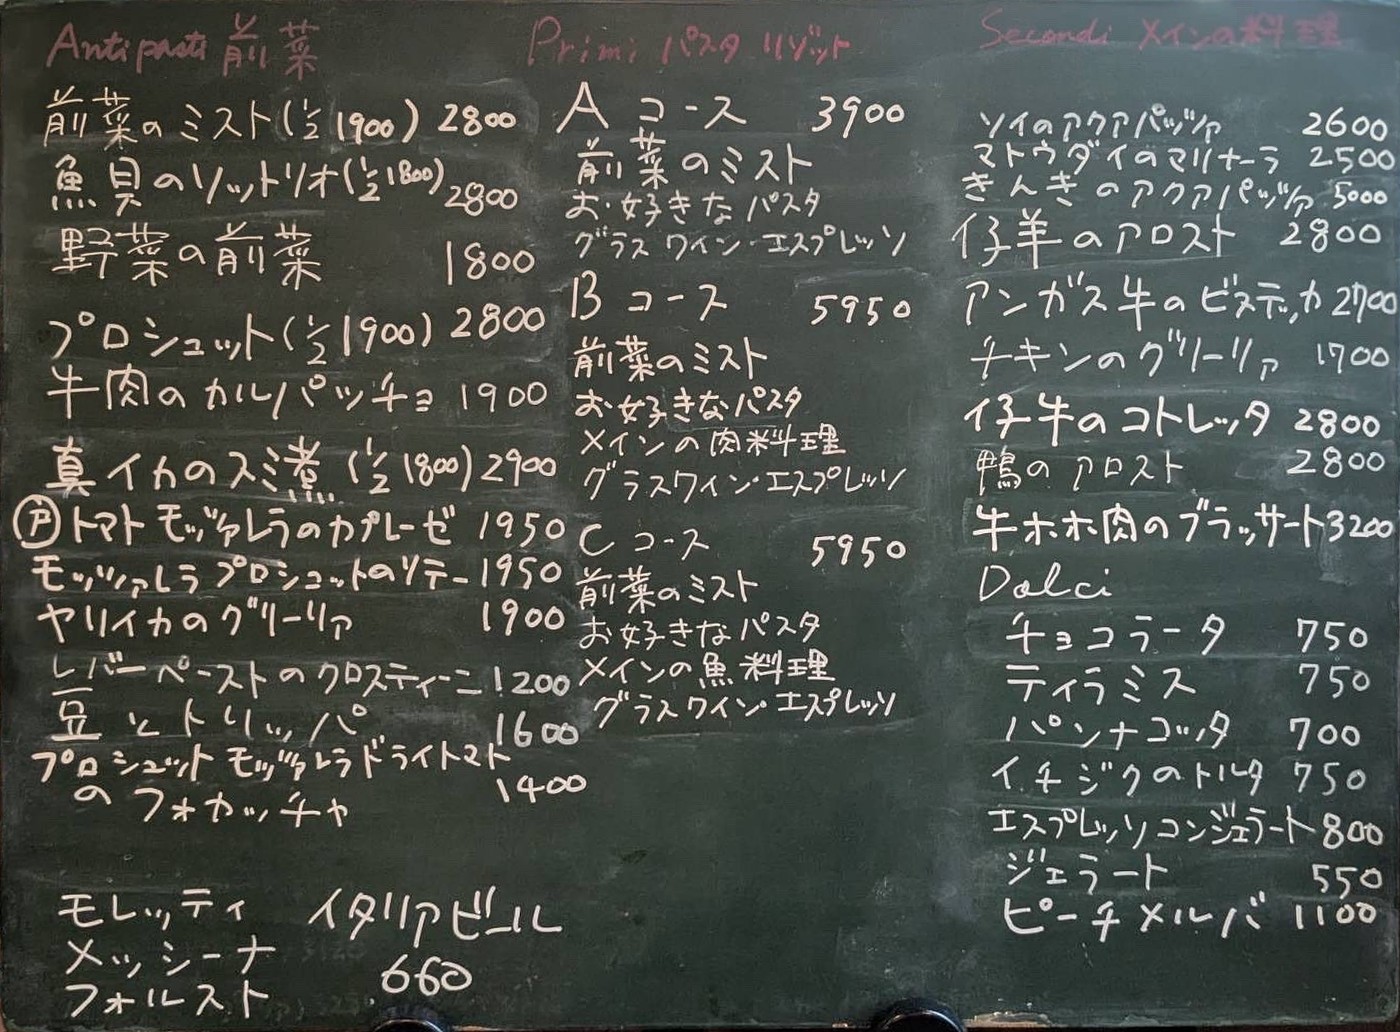 Antipasti 前菜
前菜のミスト(1/2 1900) 2800
魚貝のソットリオ(1/2 1800) 2800
野菜の前菜 1800
プロシュット(1/2 1900) 2800
牛肉のカルパッチョ 1900
真イカのスミ煮 (1/2 1800) 2900
㋐トマト モッツァレラのカプレーゼ 1950
モッツァレラ プロシュットのソテー 1950
ヤリイカのグリーリァ 1900
レバーペーストのクロスティーニ 1200
豆とトリッパ 1600
プロシュット モッツァレラ ドライトマト
のフォカッチャ 1400
モレッティ イタリアビール
メッシーナ 660
フォルスト
Primi パスタ リゾット
A コース 3900
前菜のミスト
お好きなパスタ
グラスワイン・エスプレッソ
B コース 5950
前菜のミスト
お好きなパスタ
メインの肉料理
グラスワイン・エスプレッソ
C コース 5950
前菜のミスト
お好きなパスタ
メインの魚料理
グラスワイン・エスプレッソ
Secondi メインの料理
ソイのアクアパッツァ 2600
マトウダイのマリナーラ 2500
きんきのアクアパッツァ 5000
仔羊のアロスト 2800
アンガス牛のビステッカ 2700
チキンのグリーリァ 1700
仔牛のコトレッタ 2800
鴨のアロスト 2800
牛ホホ肉のブラッサート 3200
Dolci
チョコラータ 750
ティラミス 750
パンナコッタ 700
イチジクのトルタ 750
エスプレッソコンジェラート 800
ジェラート 550
ピーチメルバ 1100